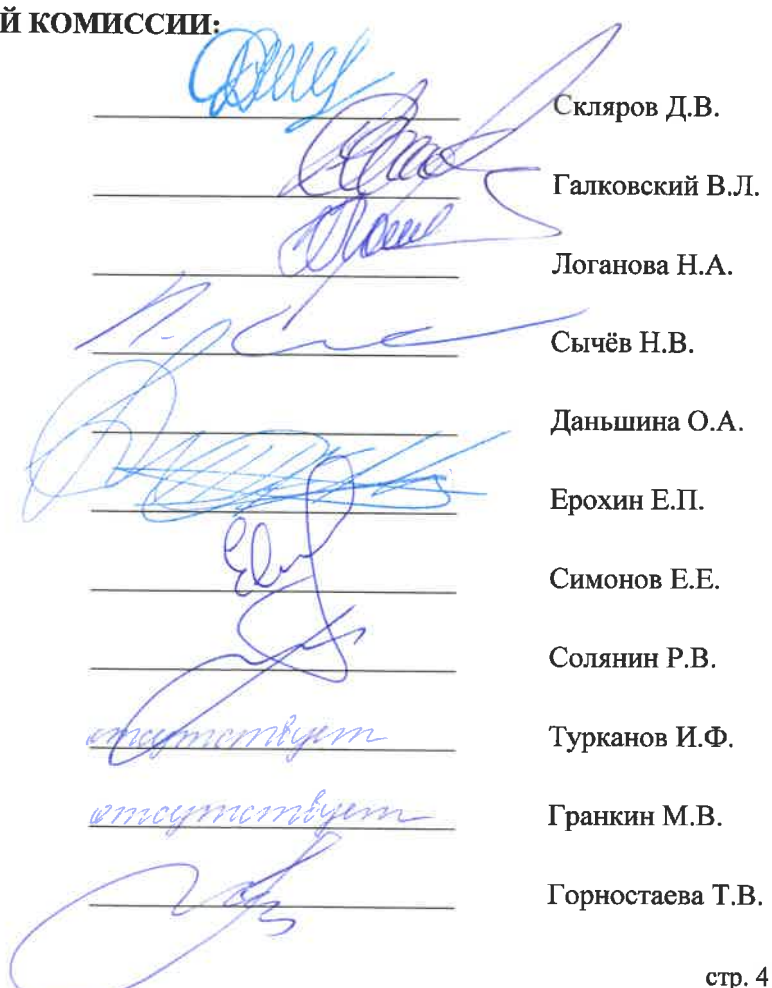 Й КОМИССИИ:
Скляров Д.В.
Галковский В.Л.
Логанова Н.А.
Сычёв Н.В.
Даньшина О.А.
Ерохин Е.П.
Симонов Е.Е.
Солянин Р.В.
отсутствует Турканов И.Ф.
отсутствует Гранкин М.В.
Горностаева Т.В.
стр. 4